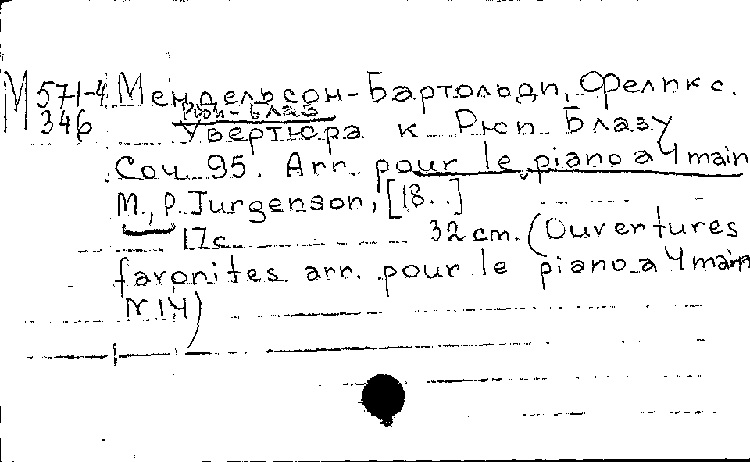 М 571-4 Мендельсон-Бартольди, Феликс.
346
Рюи-Блаз
Увертюра к Рюи Блазу
Соч 95. Arr. pour le piano a 4 main
M., P. Jurgenson, [18..]
17с 32 cm. (Ouvertures
favorites arr. pour le piano a 4 main
N. 14)